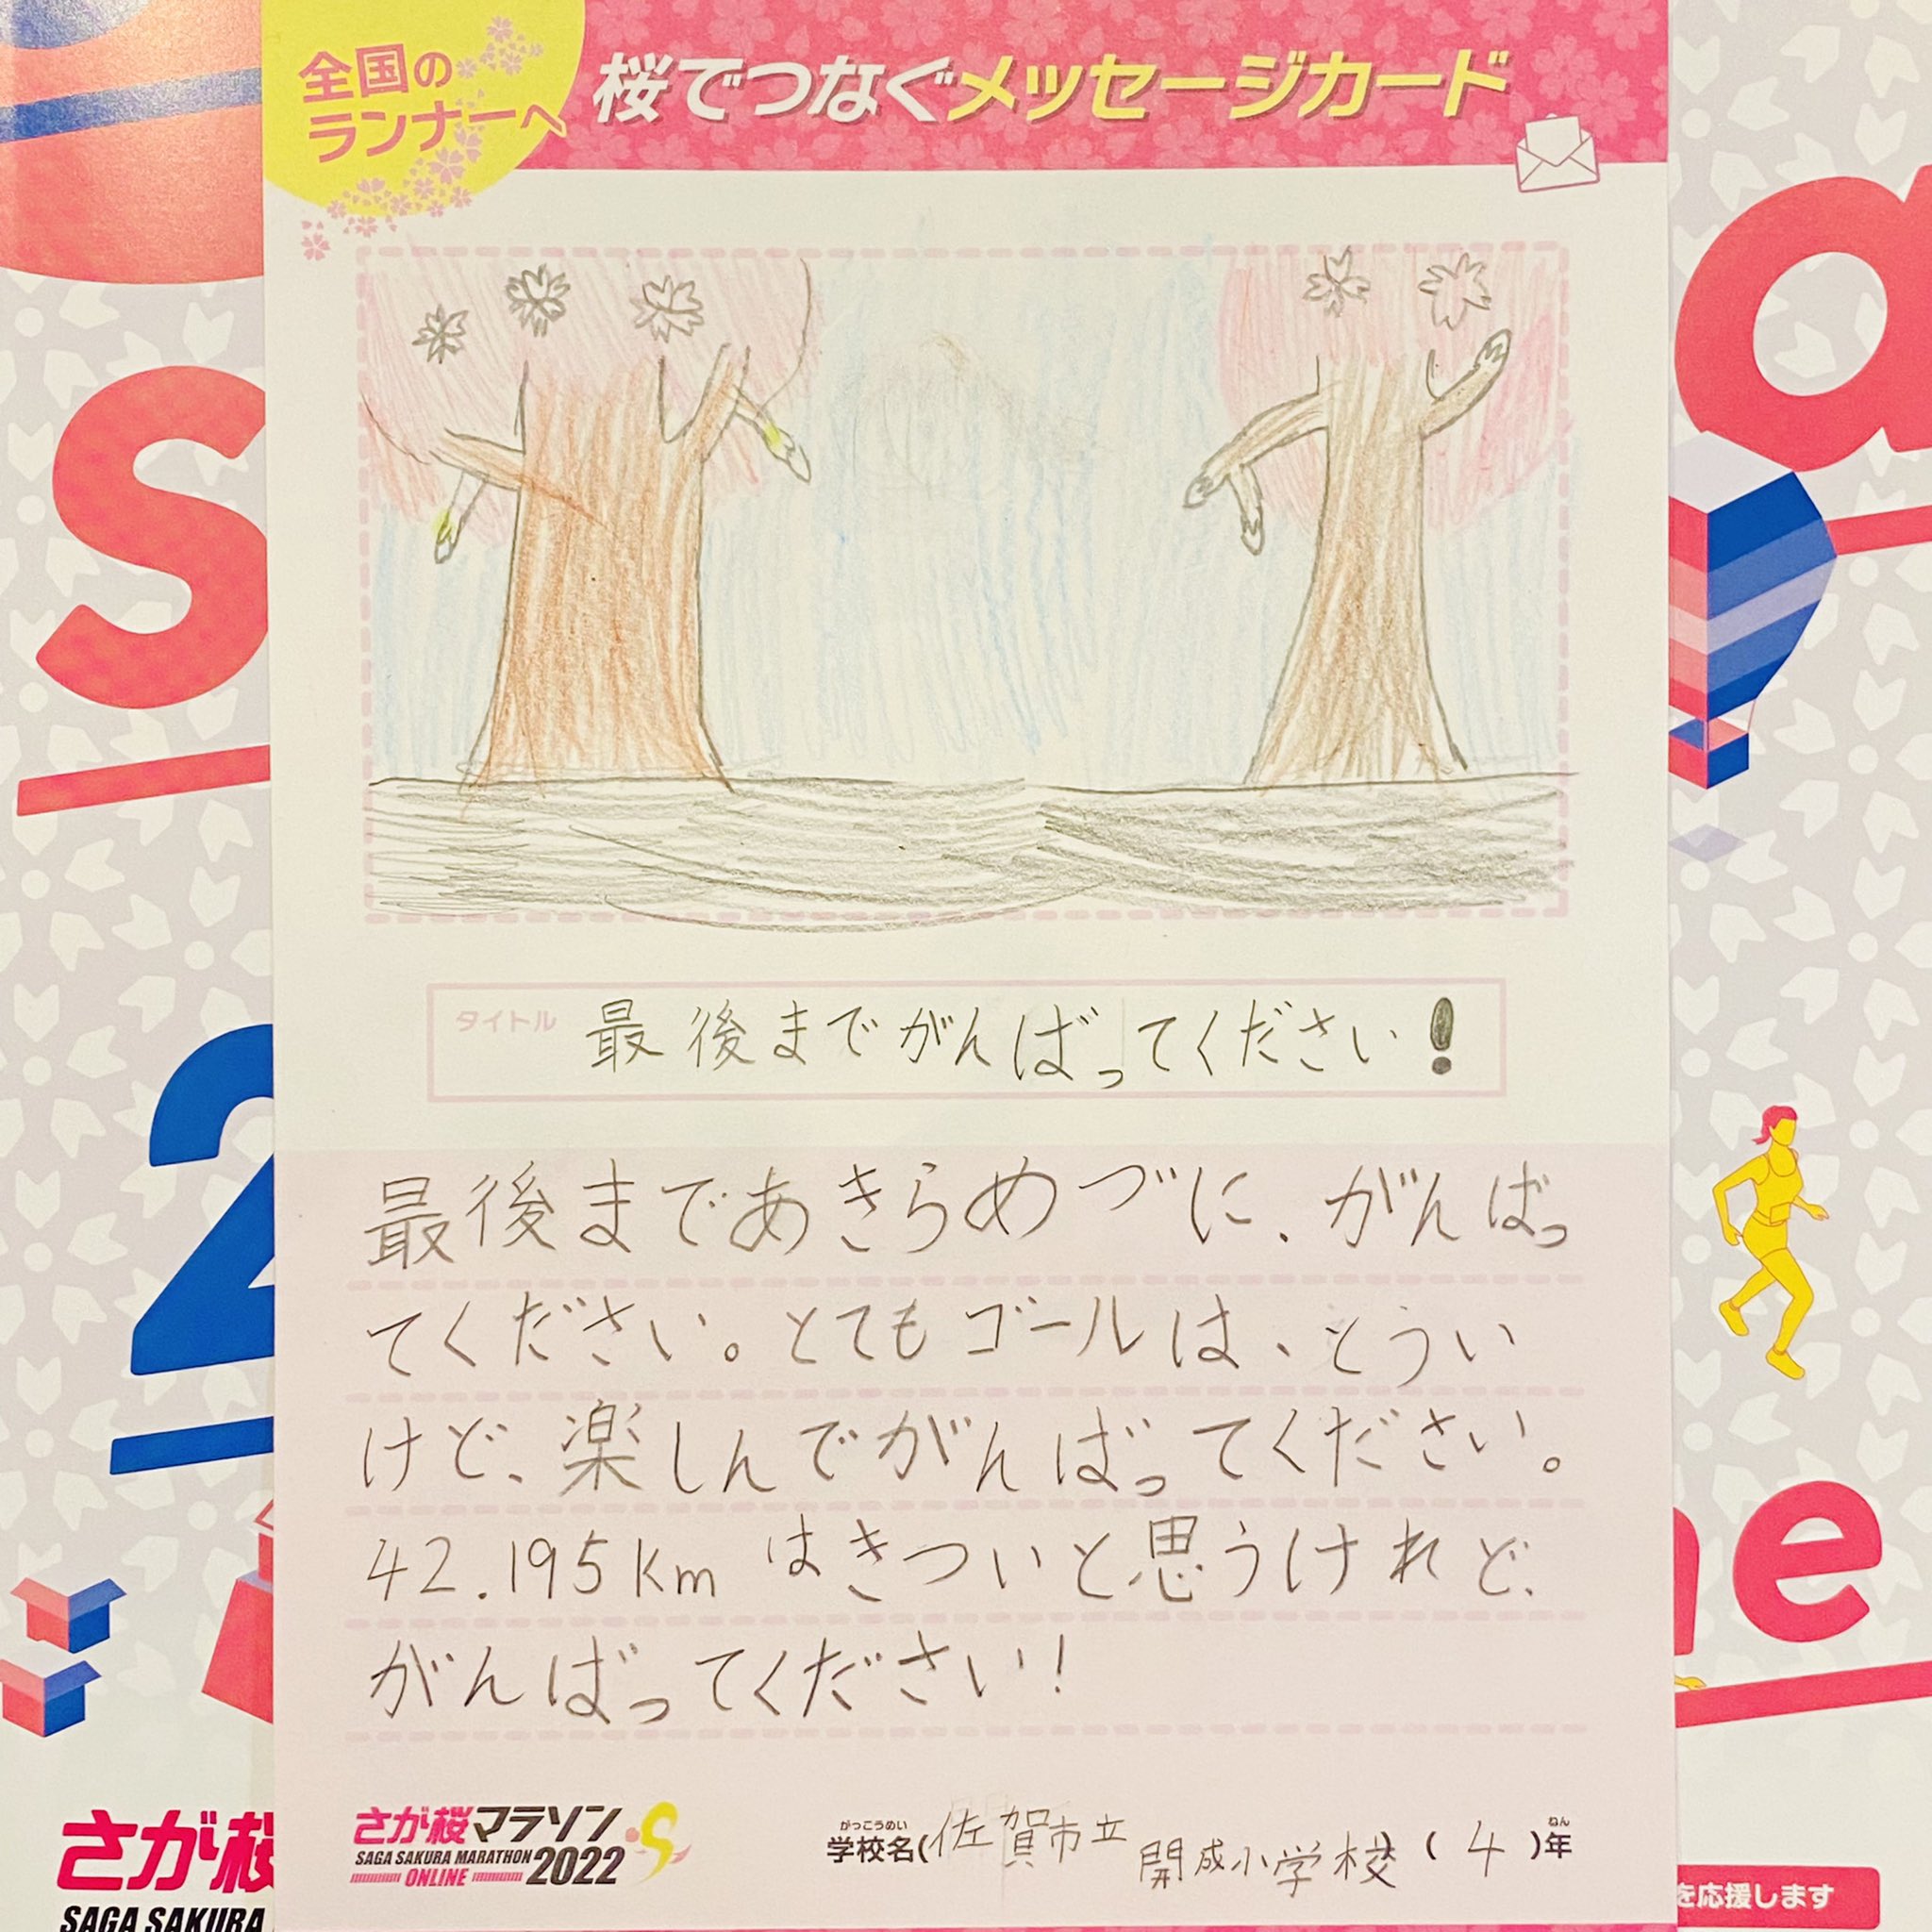 全国の
ランナーへ
桜でつなぐメッセージカード
タイトル
最後までがんばってください!
最後まであきらめづに、がんばっ
てください。とてもゴールは、とうい
けど、楽しんでがんばってください。
42.195kmはきついと思うけれど、
がんばってください!
さが桜マラソン
SAGA SAKURA MARATHON
ONLINE
2022
がっこうめい
学校名(佐賀市立開成小学校)(4)年
ねん
さが桜
SAGA SAKURA
を応援します
s
a
2
ne